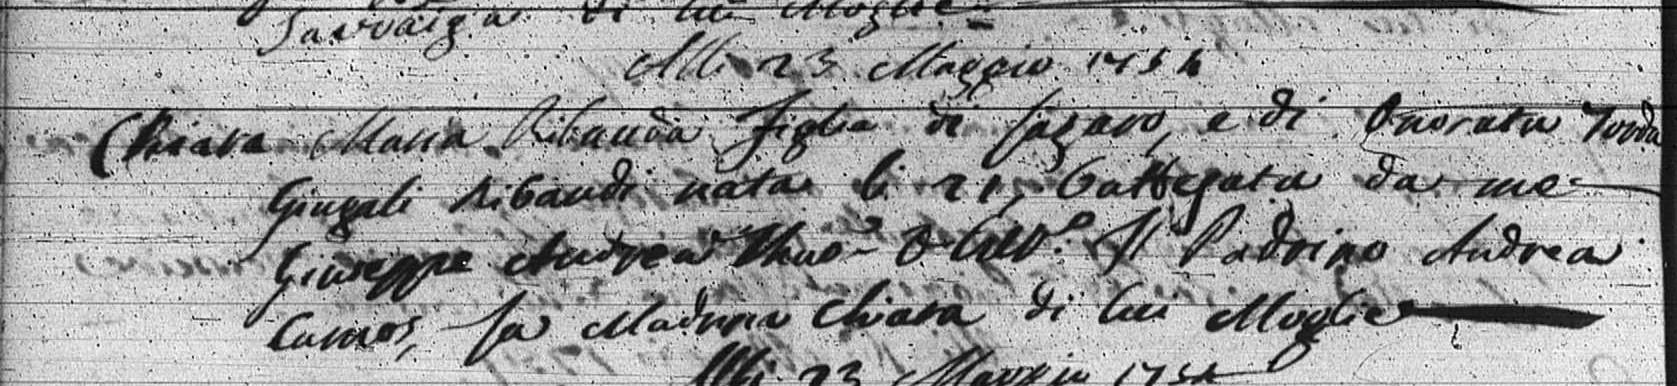 di lui Moglie
Alli 23 Maggio 1754
Chiara Maria Ribauda figlia di Lazaro, e di Onorata
Giugali Ribaudi nata li 21, battezata da me
Giuseppe Andrea Il Padrino Andrea
La Madrina Chiara di lui Moglie
Alli 23 Maggio 1754